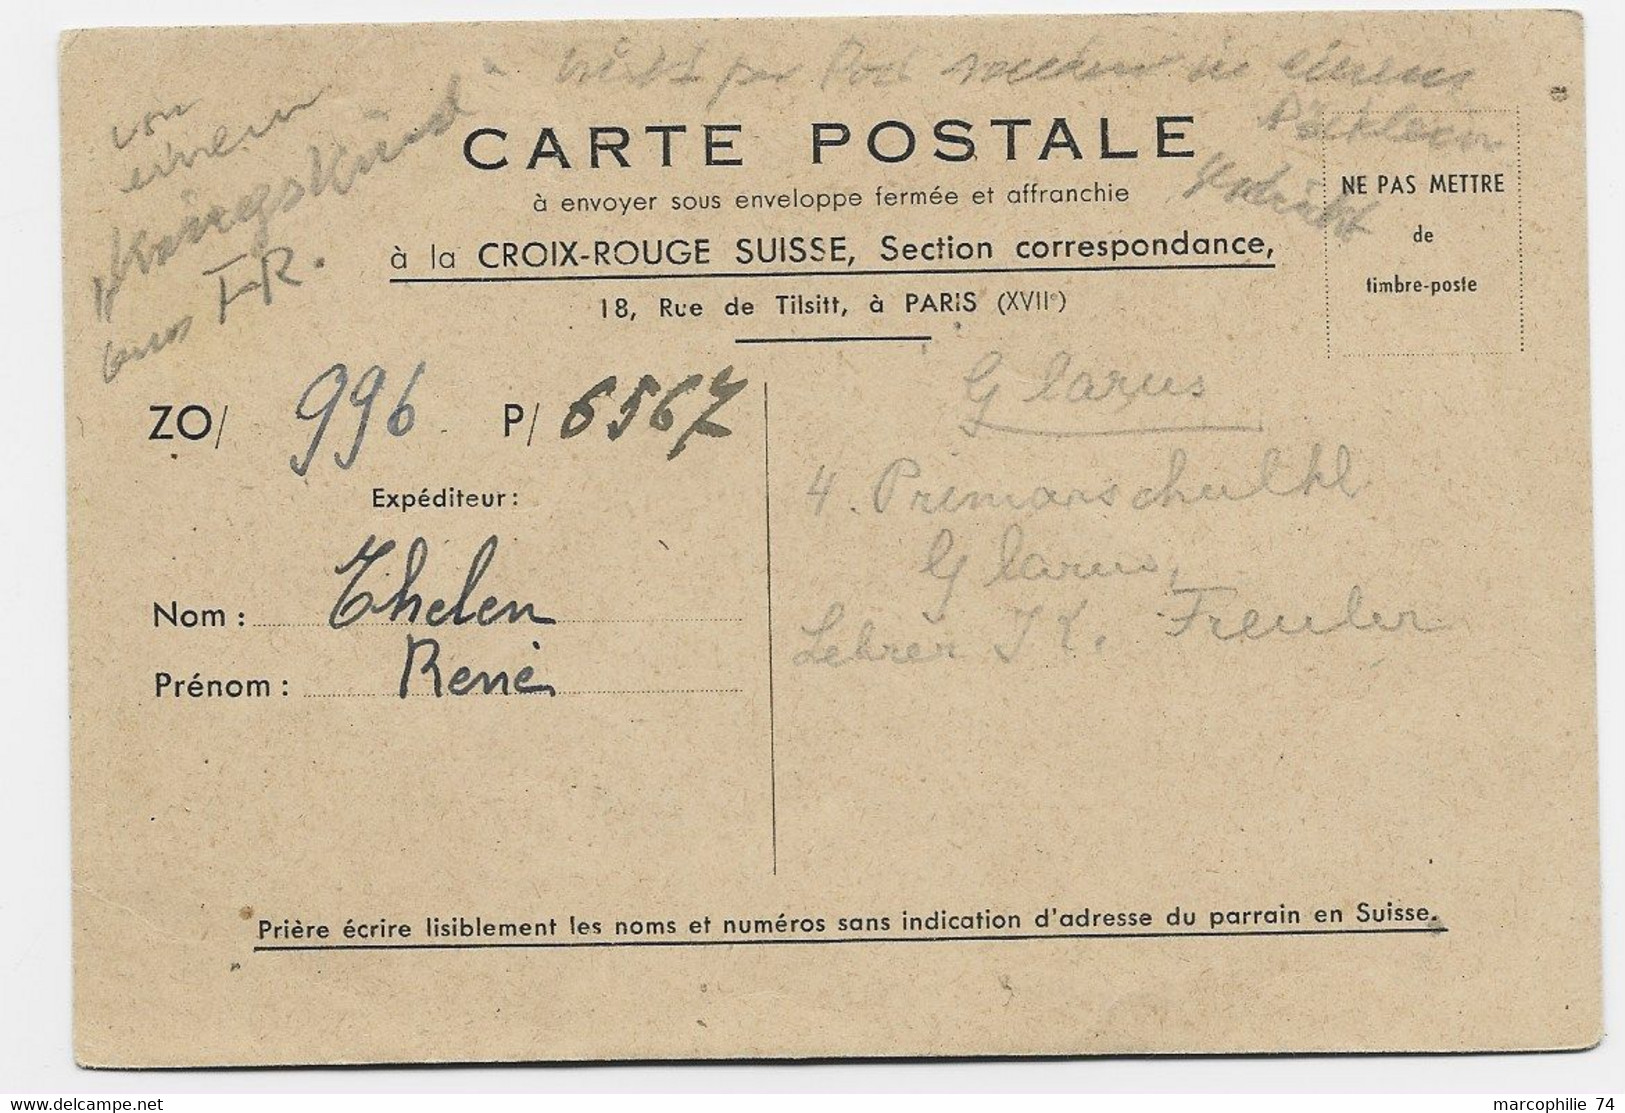 nicht per Post sondern in einem
Päcklein
von
einem
"Kriegskind"
aus FR.
CARTE POSTALE
à envoyer sous enveloppe fermée et affranchie
à la CROIX-ROUGE SUISSE, Section correspondance,
18, Rue de Tilsitt, à PARIS (XVIIe)
NE PAS METTRE
de
timbre-poste
ZO/ 996 P/ 6567
Expéditeur :
Nom : Thelen
Prénom : René
Glarus
4. Primarschulkl
Glarus,
Lehrer Freuler
Prière écrire lisiblement les noms et numéros sans indication d'adresse du parrain en Suisse.
marcophilie 74